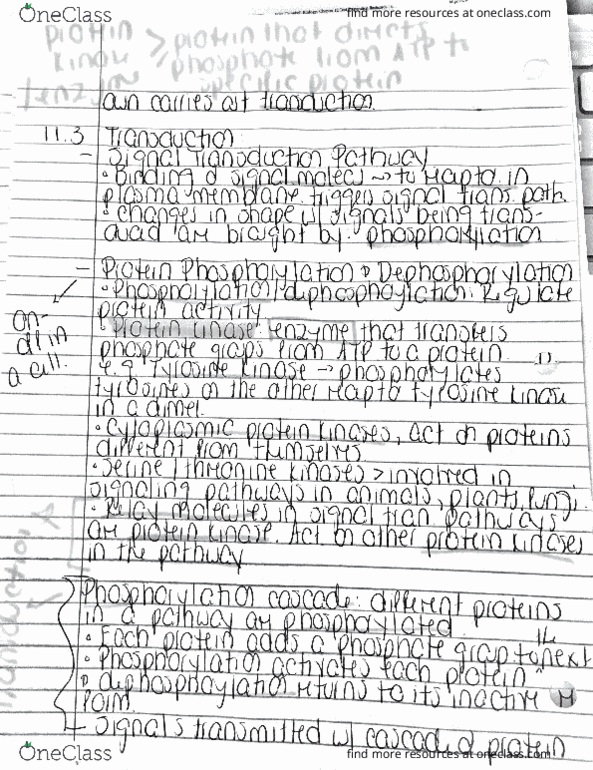 OneClass
find more resources at oneclass.com
protein > protein that directs
kinase phosphate from ATP to
enzyme specific protein
own carries out transduction.
11.3 Transduction:
- Signal Transduction Pathway
• Binding of signal molec → to in
plasma membrane triggers signal trans. path.
• changes in shape w/ signals being trans-
are brought by phosphorylation
- Protein Phosphorylation & Dephosphorylation
• Phosphorylation / dephosphorylation: Regulate
protein activity.
on-
in
a cell.
• protein kinase: enzyme that transfers
phosphate groups from ATP to a protein.
e.g. Tyrosine kinase → phosphorylates
tyrosines on the other to tyrosine kinase
in a dimer.
• cytoplasmic protein kinases, act on proteins
different from themselves.
• serine / threonine kinases > involved in
signaling pathways in animals, plants, fungi
• Relay molecules in signal tran pathways
are protein kinase. Act on other protein kinases
in the pathway
Phosphorylation cascade: different proteins
in a pathway are phosphorylated.
• Each protein adds a phosphate group to the next
• phosphorylation activates each protein
• dephosphorylation returns to its inactive
form.
- signals transmitted w/ cascade of protein
OneClass
find more resources at oneclass.com